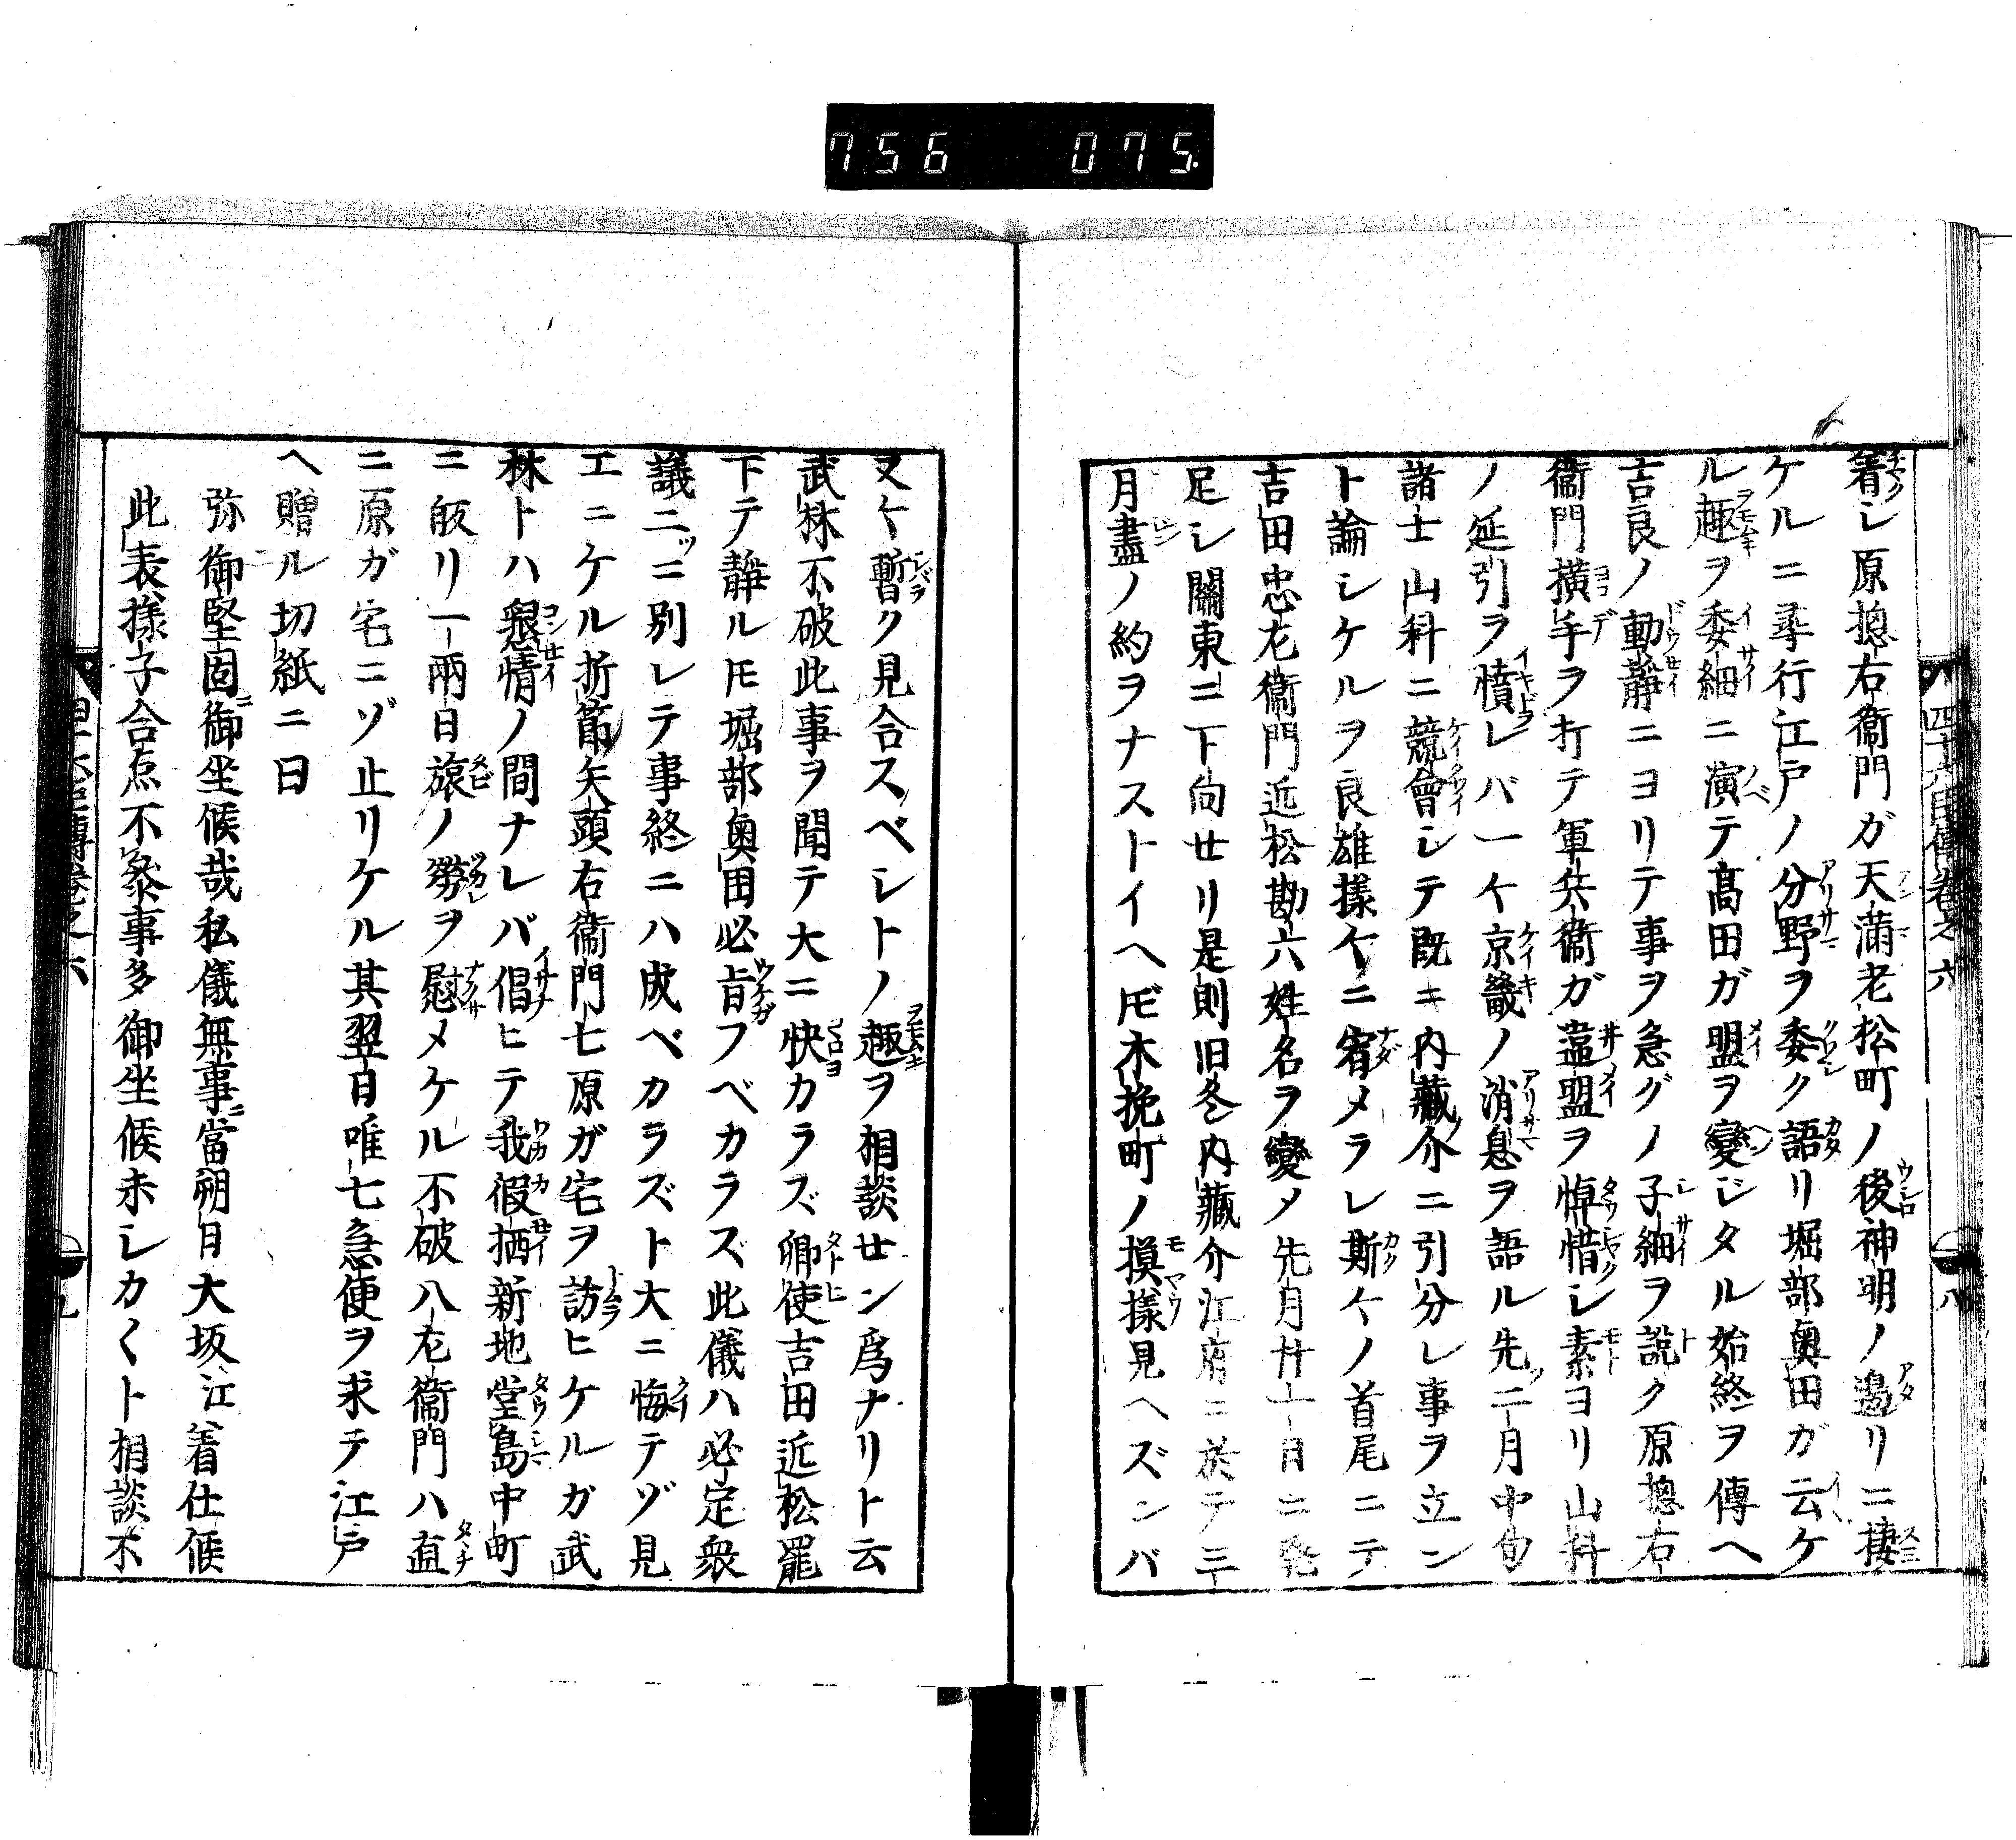 756 075
四十六士傳巻之六
八
着シ原摠右衛門ガ天満老松町ノ後神明ノ邊リニ棲
ケルニ尋行江戸ノ分野ヲ委ク語リ堀部奥田ガ云ケ
ル趣ヲ委細ニ演テ髙田ガ盟ヲ變ジタル始終ヲ傳ヘ
吉良ノ動静ニヨリテ事ヲ急グノ子細ヲ説ク原摠右
衛門横手ヲ打テ軍兵衛ガ違盟ヲ悼惜シ素ヨリ山科
ノ延引ヲ憤レバ一々京畿ノ消息ヲ語ル先二月中旬
諸士山科ニ競會シテ既ニ内藏介ニ引分レ事ヲ立ン
ト論シケルヲ良雄様々ニ宥メラレ斯々ノ首尾ニテ
吉田忠左衛門近松勘六姓名ヲ變メ先月廿一日ニ発
足シ關東ニ下向セリ是則旧冬内藏介江府ニ於テ三
月盡ノ約ヲナストイヘ𪜈木挽町ノ摸様見ヘズンバ
又々暫ク見合スベシトノ趣ヲ相談セン爲ナリト云
武林不破此事ヲ聞テ大ニ快カラズ縦使吉田近松罷
下テ静ル𪜈堀部奥田必肯フベカラス此儀ハ必定衆
議二ツニ別レテ事終ニハ成ベカラズト大ニ悔テゾ見
エニケル折節矢頭右衛門七原ガ宅ヲ訪ヒケルガ武
林トハ懇情ノ間ナレバ倡ヒテ我假栖新地堂島中町
ニ皈リ一兩日旅ノ勞ヲ慰メケル不破八左衛門ハ直
ニ原ガ宅ニゾ止リケル其翌日唯七急便ヲ求テ江戸
ヘ贈ル切紙ニ曰
弥御堅固ニ御坐候哉私儀無事ニ當朔日大坂江着仕候
此表様子合点不參事多御坐候未シカ〱ト相談不
九